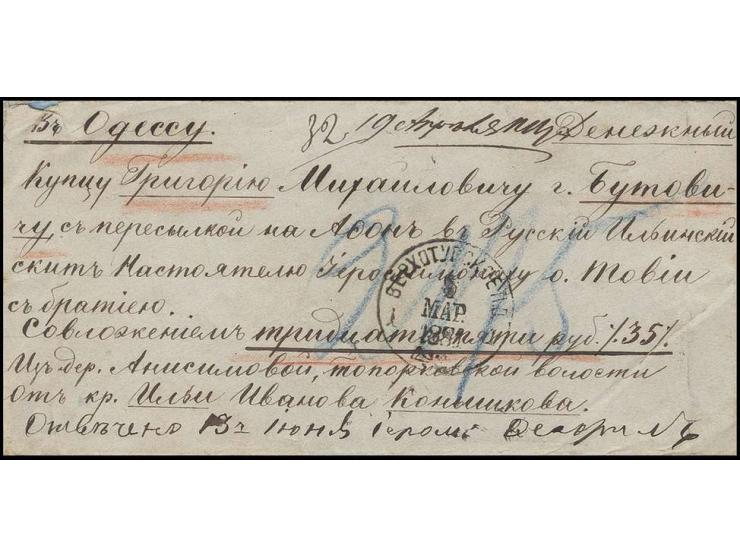 Въ Одессу. 19 Денежный
Купцу Григорію Михайловичу г. Бутови-
чу съ пересылкой на Аѳонъ въ Русскій Ильинскій
скитъ Настоятелю Іеросхимонаху о. Товіи
съ братіею.
Совложеніемъ тридцати пяти руб. /35/.
Изъ дер. Анисимовой, топорковской волости
Отъ кр. Ильи Иванова Конишкова.
Отвѣчено Іюня Іером.
ВЕРХОТУР
МАР.